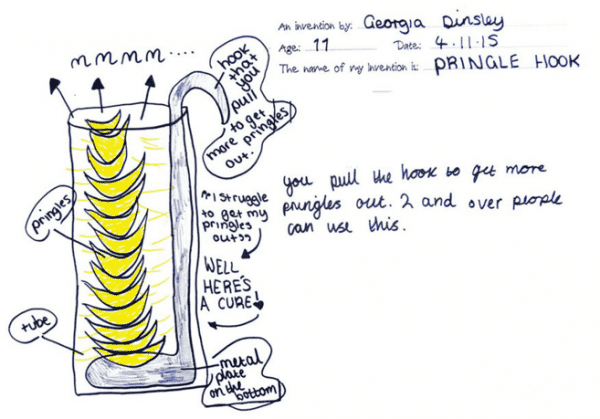 An invention by: Georgia Dinsley
Age: 11 Date: 4.11.15
The name of my invention is: PRINGLE HOOK
mmmm....
hook
that
you
pull
more
to get
pringles
out.
you pull the hook to get more
pringles out. 2 and over people
can use this.
"I struggle
to get my
pringles
out"
WELL
HERE'S
A CURE!
pringles
tube
metal
plate
on the
bottom